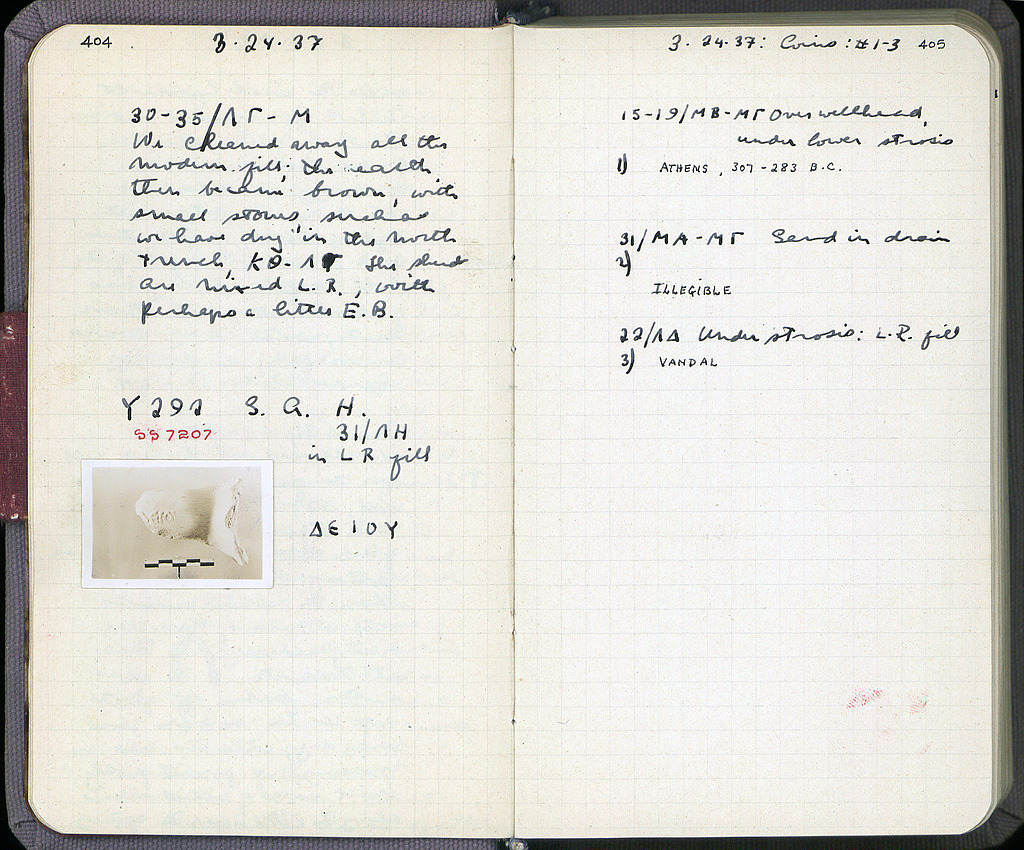 404
3·24·37
30-35/ΛΓ-Μ
We cleaned away all the
modern fill; the earth
then became brown, with
small stones, such as
we have dug in the north
trench, ΚΘ-ΛΓ The sherds
are mixed L.R., with
perhaps a little E.B.
Υ 292 S. A. H.
SS 7207
31/ΛΗ
in LR fill
ΔΕΙΟΥ
3. 24.37: Coins: #1-3 405
15-19/ΜΒ-ΜΓ Over wellhead,
under lower strosis
1) ATHENS, 307-283 B.C.
31/ΜΑ-ΜΓ Sand in drain
2)
ILLEGIBLE
22/ΛΔ Under strosis: L.R. fill
3) VANDAL